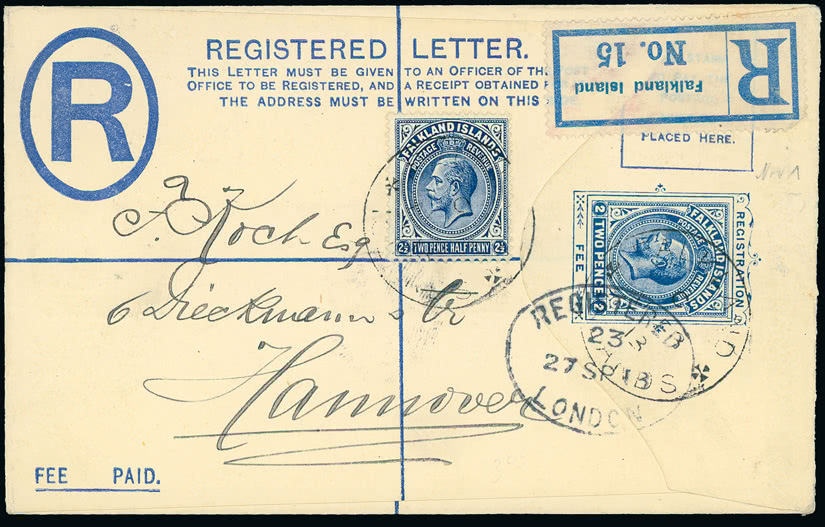 REGISTERED LETTER.
THIS LETTER MUST BE GIVEN TO AN OFFICER OF THE
OFFICE TO BE REGISTERED, AND A RECEIPT OBTAINED
THE ADDRESS MUST BE WRITTEN ON THIS
R
R
Falkland Island
No. 15
PLACED HERE.
FALKLAND ISLANDS
POSTAGE REVENUE
2½ TWO PENCE HALF PENNY 2½
REGISTRATION
FALKLAND ISLANDS
2 TWO PENCE 2
FEE
Koch Esq
6 Dieckmann Str
Hannover
REGISTERED
23
27 SP 13
LONDON
FEE PAID.